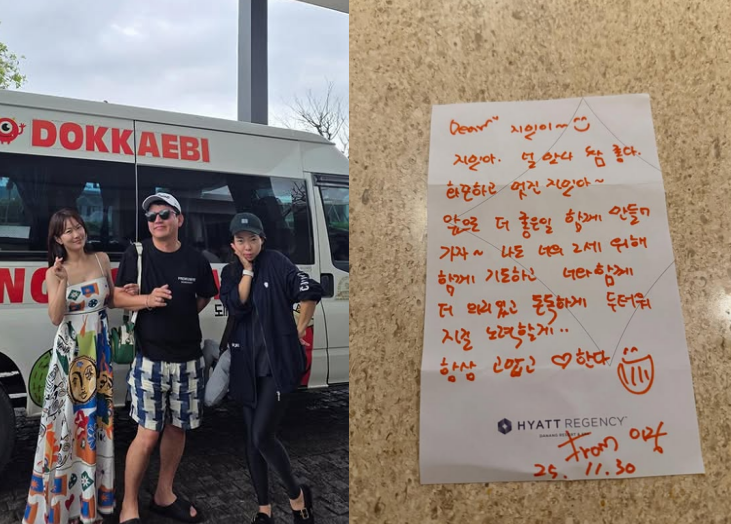 DOKKAEBI
Dear~ 지일이~
지일아. 널 만나 참 좋다.
화끈하고 멋진 지일아~
앞으로 더 좋은일 함께 만들어
가자~ 나도 너의 2세 위해
함께 기도하고 너와 함께
더 의리있고 돈독하게 두터워
지길 노력할게..
항상 고맙고 ♡한다
HYATT REGENCY
From 이랑
25. 11. 30